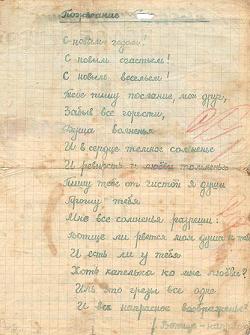 Пожелание
С новым годом!
С новым счастьем!
С новым весельем!
Тебе пишу послание, мой друг,
Забыв все горести,
Душа волненья
И в сердце тёмное сомненье
И ревность и любви томленье
Пишу тебе от чистой я души
Прошу тебя
Мне все сомненья разреши:
Вотще ли рвется моя душа к тебе
И есть ли у тебя
Хоть капелька ко мне любви?
Иль это грезы все одне
И все напрасное воображенье
Вотще - напр